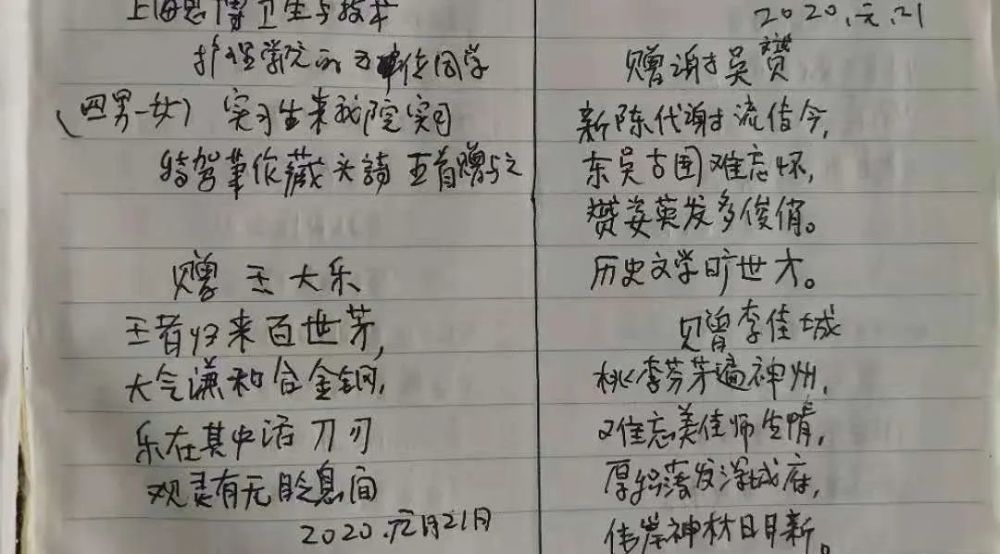 上海思博卫生与技术
护理学院的五位同学
(四男一女) 实习生来我院实习
特驾笔作藏头诗五首赠与之
赠王大乐
王者归来百世芽,
大气谦和合金钢,
乐在其中活刀刃
观灵有无眨息间
2020.元月21月
2020.元.21
赠谢吴赟
新陈代谢流传今,
东吴古国难忘怀,
赟姿英发多俊俏。
历史文学旷世才。
赠李佳城
桃李芬芳遍神州,
难忘美佳师生情,
厚积落发深城府,
伟岸神林日月新。